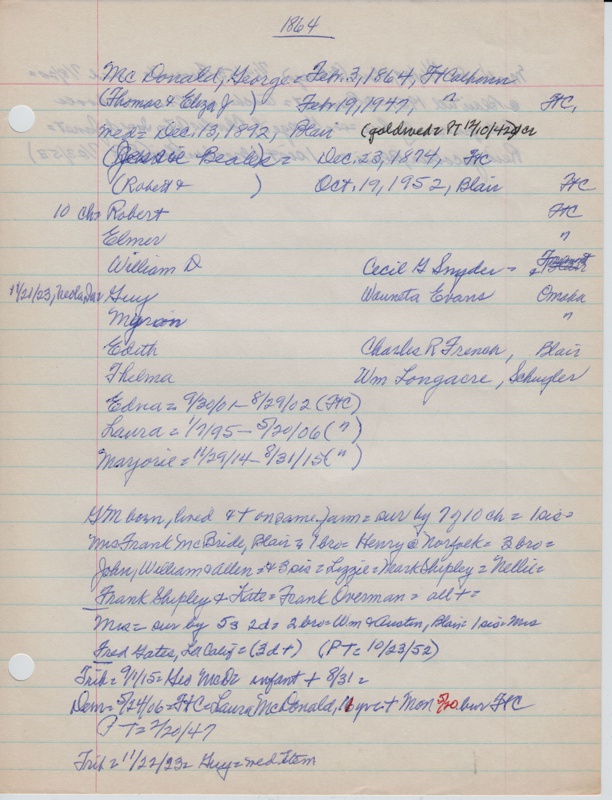 1864
Mc Donald, George = Feb. 3, 1864, FtCalhoun
(Thomas & Eliza J ) Feb 19, 1947, " FtC,
med = Dec. 13, 1892, Blair (goldwed = PT 12/10/42)
(Jessie Beales = Dec. 23, 1874, FtC
(Robert & ) Oct. 19, 1952, Blair FtC
10 ch = Robert FtC
Elmer "
William D Cecil G Snyder =
11/21/23, Neola, Ia = Guy Wauneta Evans Omaha
Myron "
Edith Charles R French, Blair
Thelma Wm Longacre, Schuyler
Edna = 9/30/01 - 8/29/02 (FtC)
Laura = 1/7/95 - 5/20/06 ( " )
Marjorie = 11/29/14 - 8/31/15 ( " )
GM born, lived & + on same farm = sur by 7 of 10 ch = 1 sis =
Mrs Frank McBride, Blair & 1 bro = Henry @ Norfolk = 3 bro =
John, William & Allen = & 3 sis = Lizzie = Mark Shipley = Nellie =
Frank Shipley & Kate = Frank Overman = all + =
Mrs = sur by 5s 2d = 2 bro = Wm & Austin, Blair = 1 sis = Mrs
Fred Gates, Calif = (3d+) (PT = 10/23/52)
Trib = 9/1/15 = Geo McDs infant + 8/31 =
Dem = 5/24/06 = FtC = Laura McDonald, 11 yrs + Mon 5/20 bur FtC
PT = 2/20/47
Trib = 11/22/23 = Guy = wed item